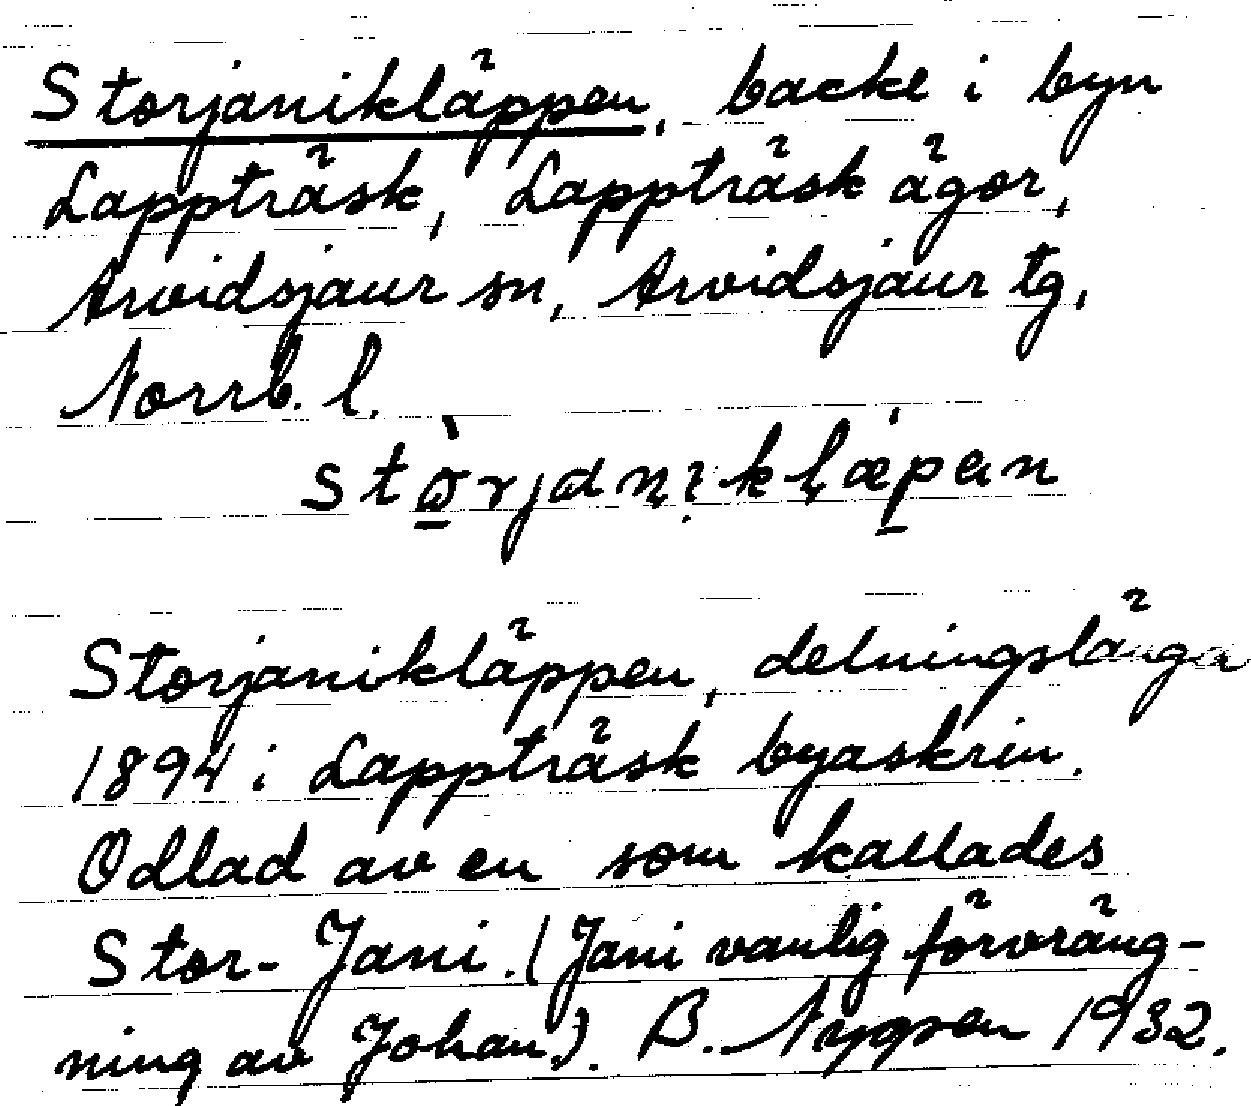 Storjanikläppen, backe i byn
Lappträsk, Lappträsk ägor,
Arvidsjaur sn, Arvidsjaur tg,
Norrb. l.
Storjanikläppen, delningslänga
1894 i Lappträsk byaskrin.
Odlad av en som kallades
Stor-Jani. (Jani vanlig förvräng-
ning av Johan). B. Nygren 1932.